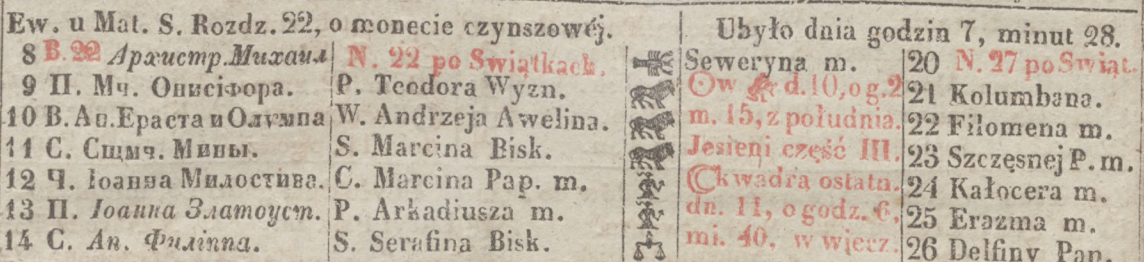 Ew. u Mat. S. Rozdz. 22, o monecie czynszowéj. Ubyło dnia godzin 7, minut 28.
8 В. 22 Архистр. Михаил N. 22 po Swiątkach. Seweryna m. 20 N. 27 po Swiąt.
9 П. Мч. Онисіфора. P. Teodora Wyzn. w d. 10, o g. 2 21 Kolumbana.
10 В. Ап. Ераста и Олумпа W. Andrzeja Awelina. m. 15, z południa. 22 Filomena m.
11 С. Сщмч. Мины. S. Marcina Bisk. Jesieni część III. 23 Szczęsnej P. m.
12 Ч. Іоанна Милостива. C. Marcina Pap. m. kwadra ostatn. 24 Kałocera m.
13 П. Іоанна Златоуст. P. Arkadiusza m. dn. 11, o godz. 6, 25 Erazma m.
14 С. Ап. Филіппа. S. Serafina Bisk. mi. 40, w wiecz. 26 Delfiny Pan.